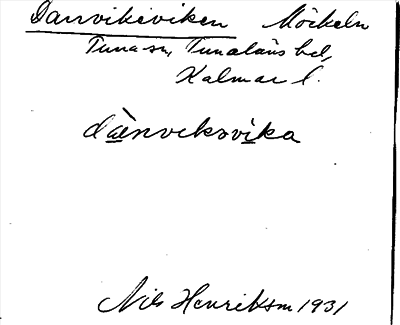 Danviksviken Möckeln
Tuna sn, Tunaläns hd,
Kalmar l.
dàenveksvika
Nils Henriksm 1931